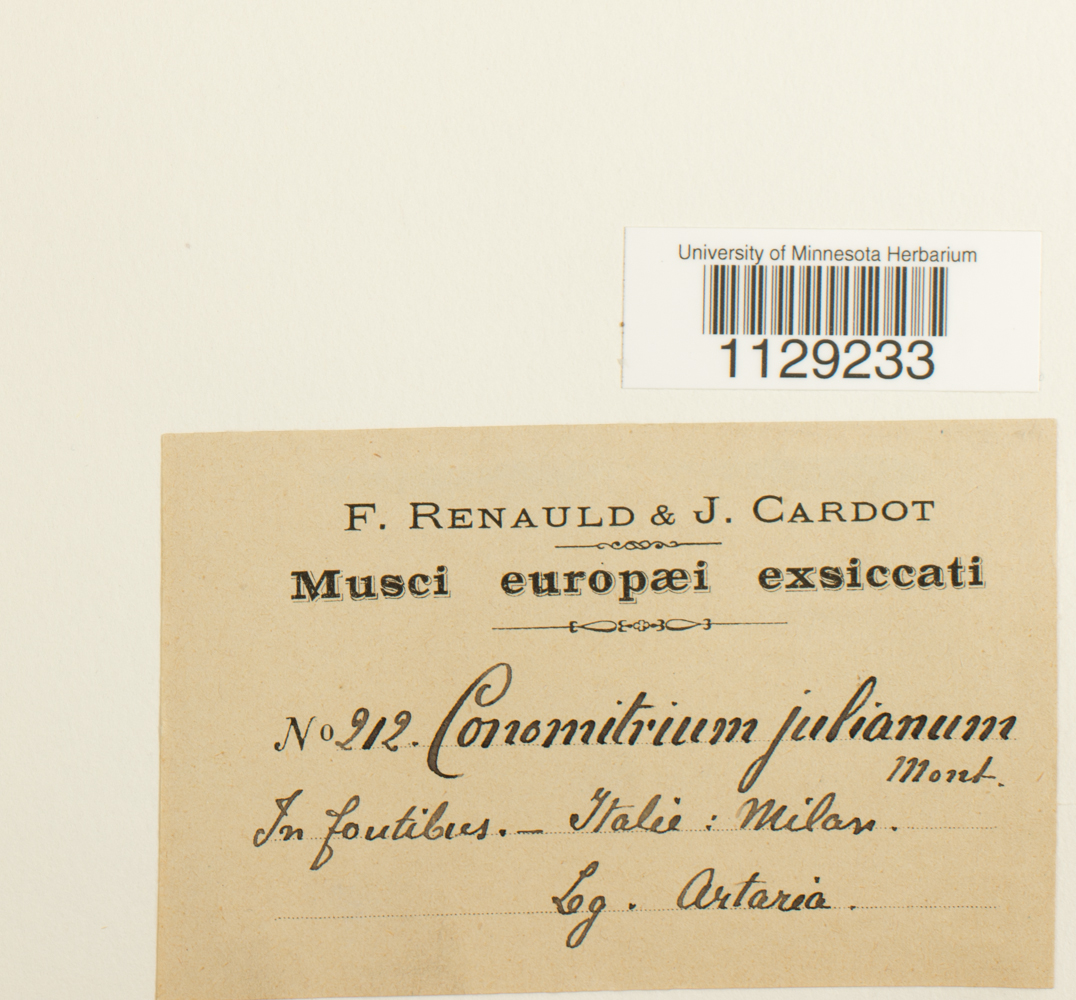 University of Minnesota Herbarium
1129233
F. RENAULD & J. CARDOT
Musci europæi exsiccati
No 212. Conomitrium julianum
Mont.
In fontibus. — Italie : Milan.
Lg. Artaria.